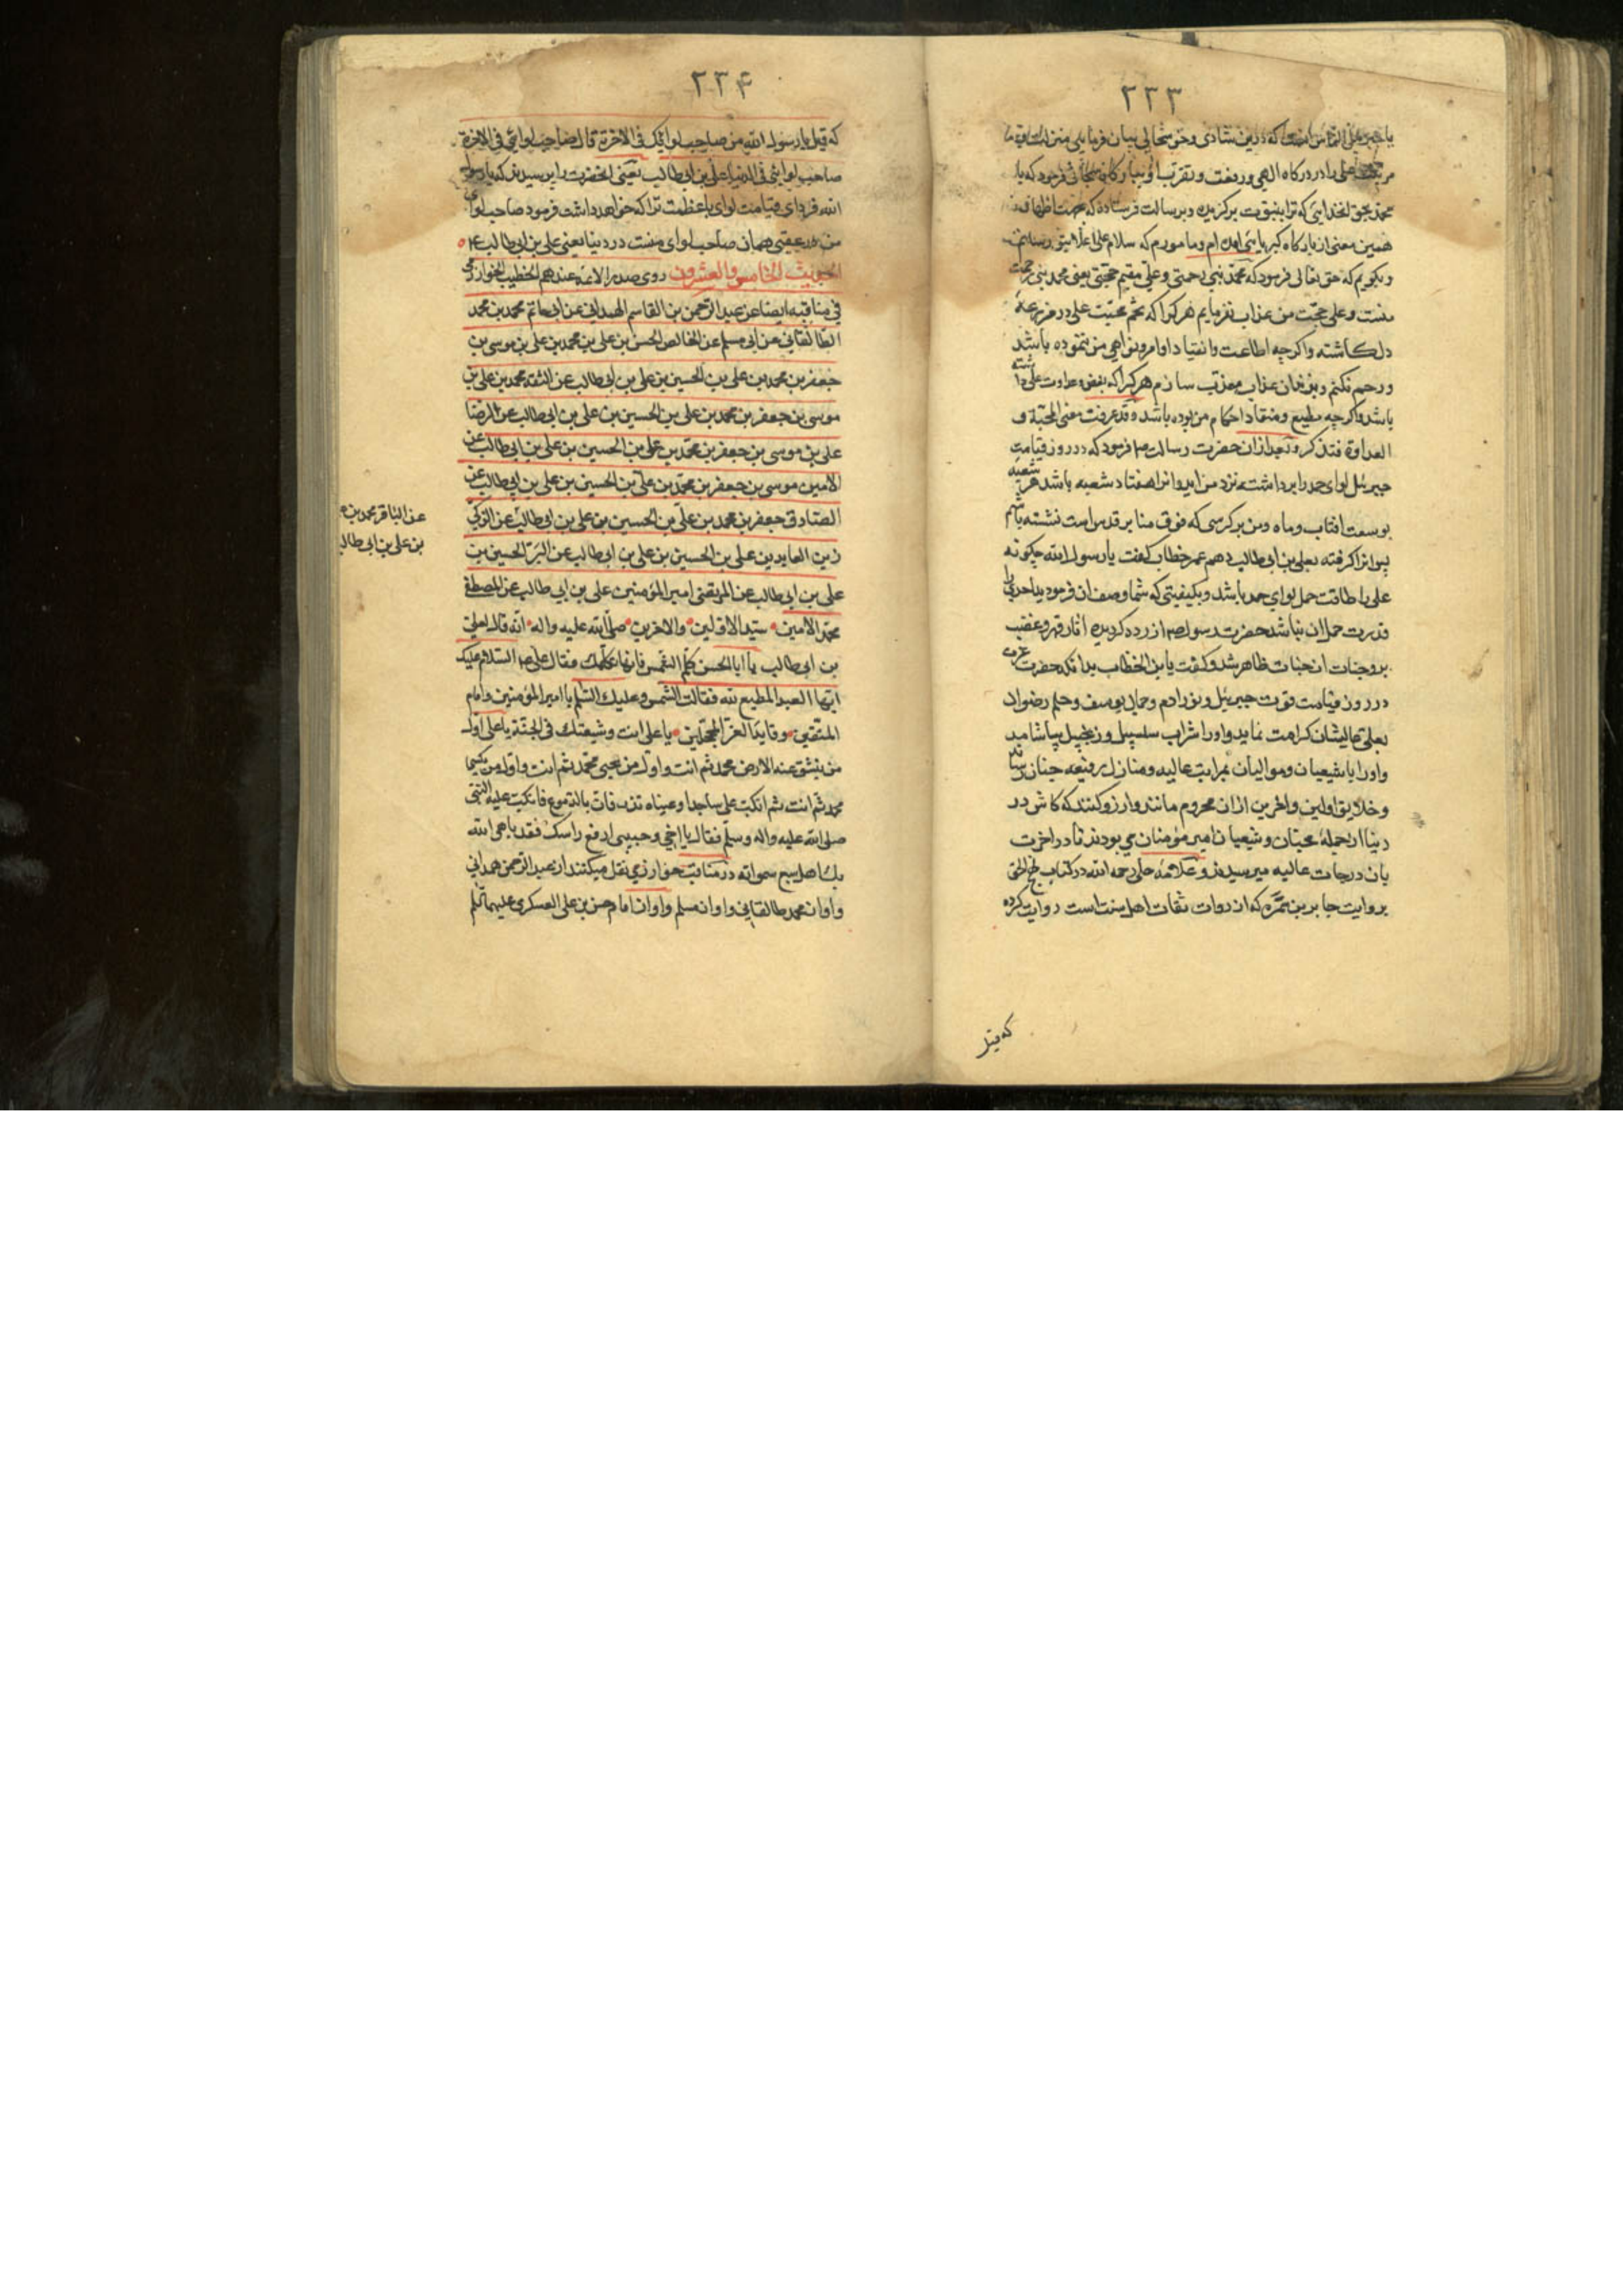 ۲۳۳
یا جبرئیل که درین شادی و حق سبحانه بیان فرمای منزلت
علی را در درکاه الهی و رفعت و تقرب او فرمود که یا
محمد بحق انخدایی که ترا بنبوت برکزیده و برسالت فرستاده که بجهت اظهار
همین معنی از بارکاه کبریایی امده ام و مامورم که سلام علی اعلا بتو رسانم
و بکویم که حق تعالی فرمود که محمد نبی رحمتی و علی مقیم حجتی یعنی محمد نبی رحمت
منست و علی حجت من عذاب نفرمایم هر کرا که تخم محبت علی در مزرعه
دل کاشته و اکرچه اطاعت و انقیاد اوامر و نواهی من ننموده باشد
و رحم نکنم و بنیران عذاب معذب سازم هر کرا که بغض و عداوت علی داشته
باشد و اکرچه مطیع و منقاد احکام من بوده باشد و قد عرفت معنی المحبة و
العداوة فتذکر و بعد ازان حضرت رسالت ص فرمود که در روز قیامت
جبرئیل لوای حمد را برداشته نزد من اید و انرا هفتاد شعبه باشد هر شعبه
بوسعت افتاب و ماه و من بر کرسی که فوق منابر قدس است نشسته باشم
پس انرا کرفته بعلی بن ابی طالب دهم عمر خطاب کفت یا رسول الله چکونه
علی را طاقت حمل لوای حمد باشد و بکیفیتی که شما وصف ان فرمودید احدی را
قدرت حمل ان نباشد حضرت رسول ص ازرده کردیده اثار قهر و غضب
بر وجنات ان جناب ظاهر شد و کفت یابن الخطاب بدانکه حضرت عزت
در روز قیامت قوت جبرئیل و نور ادم و جمال یوسف و حلم رضوان
بعلی عالیشان کرامت نماید و او را شراب سلسبیل و زنجبیل بیاشامد
و او را با شیعیان و موالیان بمراتب عالیه و منازل رفیعه جنان رساند
و خلایق اولین و اخرین ازان محروم مانند و ارزو کنند که کاش در
دنیا از جمله محبان و شیعیان امیر مؤمنان می بودند تا در اخرت
بان درجات عالیه میرسیدند و علامه حلی رحمه الله در کتاب نهج الحق
بروایت جابر بن سمره که از روات ثقات اهل سنت است روایت کرده
که قیل
۲۳۴
که قیل یا رسول الله من صاحب لوائک فی الاخرة قال صاحب لوائی فی الاخرة
صاحب لوائی فی الدنیا علی بن ابی طالب یعنی انحضرت را پرسیدند که یا رسول
الله فردای قیامت لوای با عظمت ترا که خواهد داشت فرمود صاحب لوای
من در عقبی همان صاحب لوای منست در دنیا یعنی علی بن ابی طالب ع
الحدیث الخامس و العشرون روی صدر الائمة عندهم الخطیب الخوارزمی
فی مناقبه ایضا عن عبد الرحمن بن القاسم الهمدانی عن ابی حاتم محمد بن محمد
الطالقانی عن ابی مسلم عن الخالص الحسن بن علی بن محمد بن علی بن موسی بن
جعفر بن محمد بن علی بن الحسین بن علی بن ابی طالب عن الثقة محمد بن علی بن
موسی بن جعفر بن محمد بن علی بن الحسین بن علی بن ابی طالب عن الرضا
علی بن موسی بن جعفر بن محمد بن علی بن الحسین بن علی بن ابی طالب عن
الامین موسی بن جعفر بن محمد بن علی بن الحسین بن علی بن ابی طالب عن
الصادق جعفر بن محمد بن علی بن الحسین بن علی بن ابی طالب عن الزکی
زین العابدین علی بن الحسین بن علی بن ابی طالب عن البر الحسین بن
علی بن ابی طالب عن المرتضی امیر المؤمنین علی بن ابی طالب عن المصطفی
محمد الامین سید الاولین والاخرین صلی الله علیه واله انه قال لعلی
بن ابی طالب یا ابا الحسن کلم الشمس فانها تکلمک فقال علی ع السلام علیک
ایها العبد المطیع لله فقالت الشمس و علیک السلم یا امیر المؤمنین و امام
المتقین و قاید الغر المحجلین یا علی انت و شیعتک فی الجنة یا علی اول
من ینشق عنه الارض محمد ثم انت و اول من یحیی محمد ثم انت و اول من یکسی
محمد ثم انت ثم انکب علی ساجدا و عیناه تذرفان بالدموع فانکب علیه النبی
صلی الله علیه واله وسلم فقال یا اخی و حبیبی ارفع راسک فقد باهی الله
بک اهل سبع سمواته در مناقب خوارزمی نقل میکنند از عبد الرحمن همدانی
و او از محمد طالقانی و او از مسلم و او از امام حسن بن علی العسکری علیهما السلم
عن الباقر محمد بن
بن علی بن ابی طالب